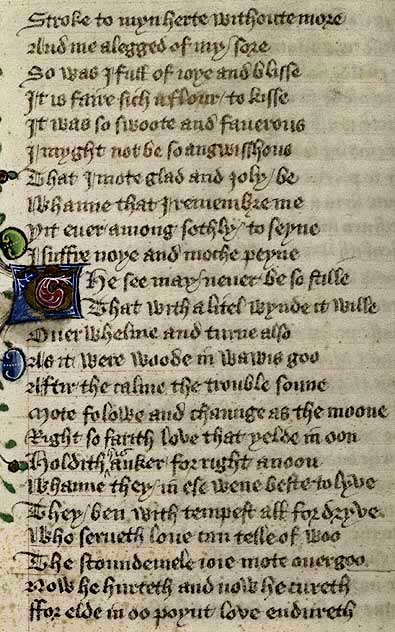 Stroke to myn herte withoute more
And me alegged of my sore
So was I full of ioye and blisse
It is faire sich a flour to kisse
It was so swoote and saverous
I myght not be so angwisshous
That I mote glad and ioly be
Whanne that I remembre me
Yit ever among sothly to seyne
I suffre noye and moche peyne
The see may never be so stille
That with a litel wynde it wille
Overwhelme and turne also
As it were woode in wawis goo
Aftir the calme the trouble soune
Mote folowe and chaunge as the moone
Right so farith love that yelde in oon
Holdith his anker for right anoon
Whanne they in ese wene beste to lyve
They ben with tempest all fordryve
Who serveth love can telle of woo
The stoundemele ioie mote overgoo
Now he hurteth and now he cureth
ffor elde in oo poynt love endureth